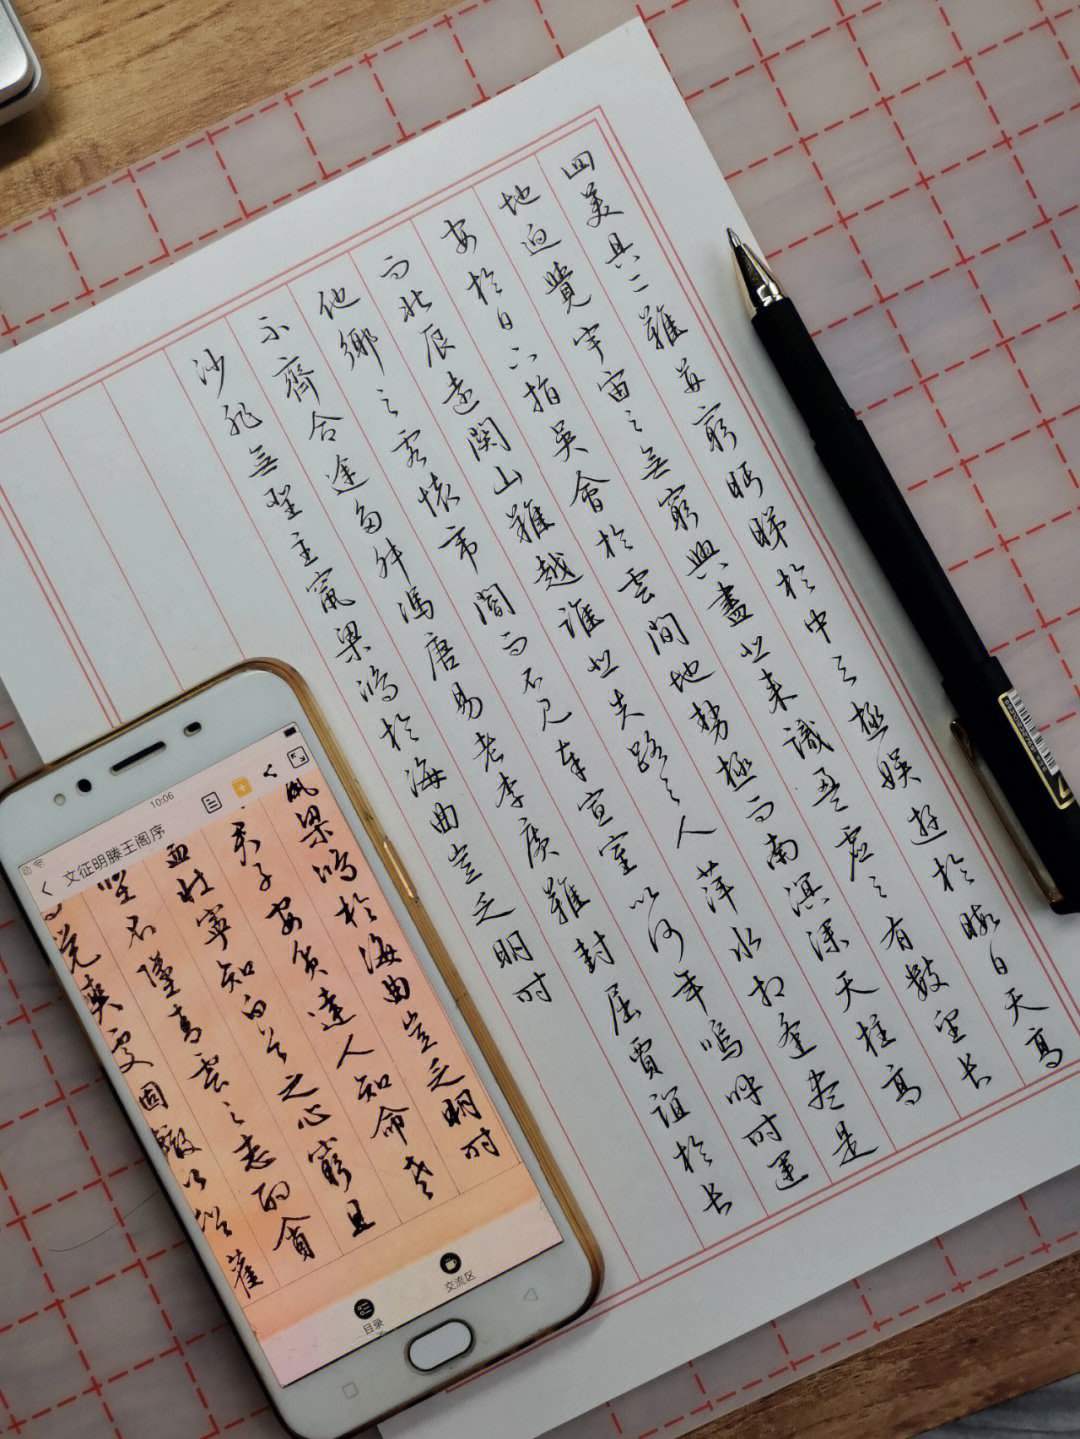 四美具二難并窮眄睇於中天極娛遊於暇日天高
地迥覺宇宙之無窮興盡悲來識盈虛之有數望長
安於日下指吳會於雲間地勢極而南溟深天柱高
而北辰遠關山難越誰悲失路之人萍水相逢盡是
他鄉之客懷帝閽而不見奉宣室以何年嗚呼時運
不齊命途多舛馮唐易老李廣難封屈賈誼於長
沙非無聖主竄梁鴻於海曲豈乏明時
10:06
文征明滕王阁序
梁鴻於海曲豈乏明時
君子安貧達人知命老
壯寧知白首之心窮且
堅不墜青雲之志酌貪
覺爽處涸轍以猶
目录
交流区